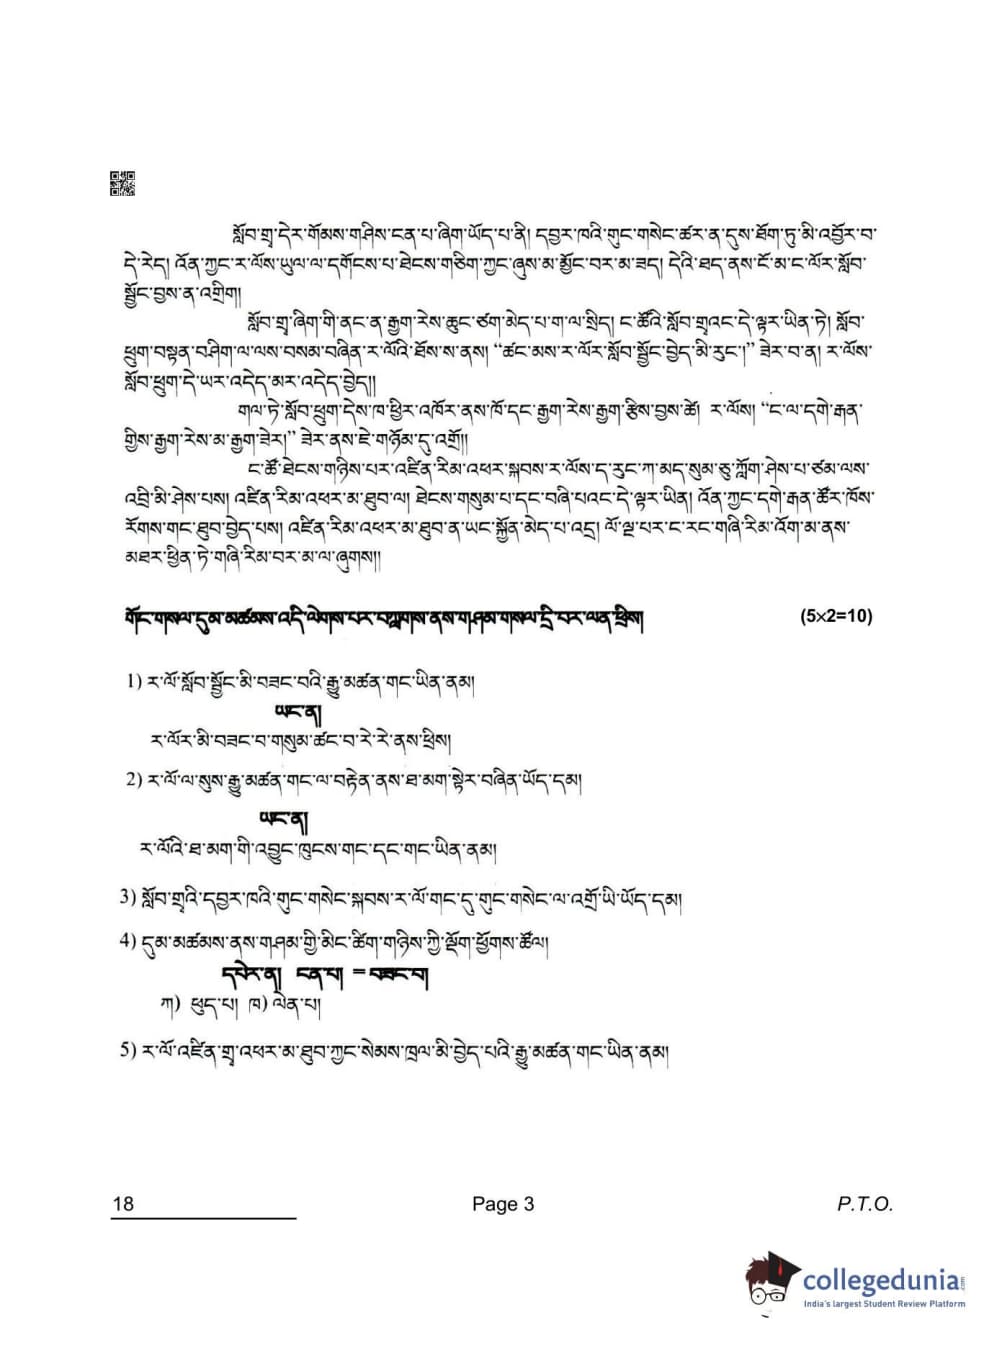 སློབ་གྲྭ་དེར་གོམས་གཤིས་ངན་པ་ཞིག་ཡོད་པ་ནི། དབྱར་ཁའི་གུང་གསེང་ཚར་ན་དུས་ཐོག་ཏུ་མི་འབྱོར་བ་
དེ་རེད། འོན་ཀྱང་ར་ལོས་ཡུལ་ལ་དགོངས་པ་ཐེངས་གཅིག་ཀྱང་ཞུས་མ་མྱོང་བར་མ་ཟད། དེའི་ཐད་ནས་ངོ་མ་ང་ལོར་སློབ་
སྦྱོང་བྱས་ན་འགྲིག།
སློབ་གྲྭ་ཞིག་གི་ནང་ན་རྒྱག་རེས་ཆུང་ཙག་མེད་པ་ག་ལ་སྲིད། ང་ཚོའི་སློབ་གྲྭའང་དེ་ལྟར་ཡིན་ཏེ། སློབ་
ཕྲུག་བསྟན་བཤིག་ལ་ལས་བསམ་བཞིན་ར་ལོའི་ཐོས་ས་ནས། “ཚང་མས་ར་ལོར་སློབ་སྦྱོང་བྱེད་མི་རུང་།” ཟེར་བ་ན། ར་ལོས་
སློབ་ཕྲུག་དེ་ཡར་འདེད་མར་འདེད་བྱེད།།
གལ་ཏེ་སློབ་ཕྲུག་དེས་ཁ་ཕྱིར་འཁོར་ནས་ཁོ་དང་རྒྱག་རེས་རྒྱག་རྩིས་བྱས་ཚེ། ར་ལོས། “ང་ལ་དགེ་རྒན་
གྱིས་རྒྱག་རེས་མ་རྒྱག་ཟེར།” ཟེར་ནས་ཇེ་གཉོམ་དུ་འགྲོ།།
ང་ཚོ་ཐེངས་གཉིས་པར་འཛིན་རིམ་འཕར་སྐབས་ར་ལོས་ད་རུང་ཀ་མད་སུམ་ཅུ་ཀློག་ཤེས་པ་ཙམ་ལས་
འབྲི་མི་ཤེས་པས། འཛིན་རིམ་འཕར་མ་ཐུབ་ལ། ཐེངས་གསུམ་པ་དང་བཞི་པའང་དེ་ལྟར་ཡིན། འོན་ཀྱང་དགེ་རྒན་ཚོར་ཁོས་
རོགས་གང་ཐུབ་བྱེད་པས། འཛིན་རིམ་འཕར་མ་ཐུབ་ན་ཡང་སྐྱོན་མེད་པ་འདྲ། ལོ་ལྔ་པར་ང་རང་གཞི་རིམ་འོག་མ་ནས་
མཐར་ཕྱིན་ཏེ་གཞི་རིམ་བར་མ་ལ་ཞུགས།།
གོང་གསལ་དུམ་མཚམས་འདི་ལེགས་པར་བཀླགས་ནས་གཤམ་གསལ་དྲི་བར་ལན་ཕྲིས། (5×2=10)
1) ར་ལོ་སློབ་སྦྱོང་མི་བཟང་བའི་རྒྱུ་མཚན་གང་ཡིན་ནམ།
ཡང་ན།
ར་ལོར་མི་བཟང་བ་གསུམ་ཚང་བ་རེ་རེ་ནས་ཕྲིས།
2) ར་ལོ་ལ་སུས་རྒྱུ་མཚན་གང་ལ་བརྟེན་ནས་ཐ་མག་སྟེར་བཞིན་ཡོད་དམ།
ཡང་ན།
ར་ལོའི་ཐ་མག་གི་འབྱུང་ཁུངས་གང་དང་གང་ཡིན་ནམ།
3) སློབ་གྲྭའི་དབྱར་ཁའི་གུང་གསེང་སྐབས་ར་ལོ་གང་དུ་གུང་གསེང་ལ་འགྲོ་ཡི་ཡོད་དམ།
4) དུམ་མཚམས་ནས་གཤམ་གྱི་མིང་ཚིག་གཉིས་ཀྱི་ལྡོག་ཕྱོགས་ཚོལ།
དཔེར་ན། ངན་པ། = བཟང་བ།
ཀ) ཕུད་པ། ཁ) ལེན་པ།
5) ར་ལོ་འཛིན་གྲྭ་འཕར་མ་ཐུབ་ཀྱང་སེམས་ཁྲལ་མི་བྱེད་པའི་རྒྱུ་མཚན་གང་ཡིན་ནམ།
18 Page 3 P.T.O.
collegedunia.com
India's largest Student Review Platform